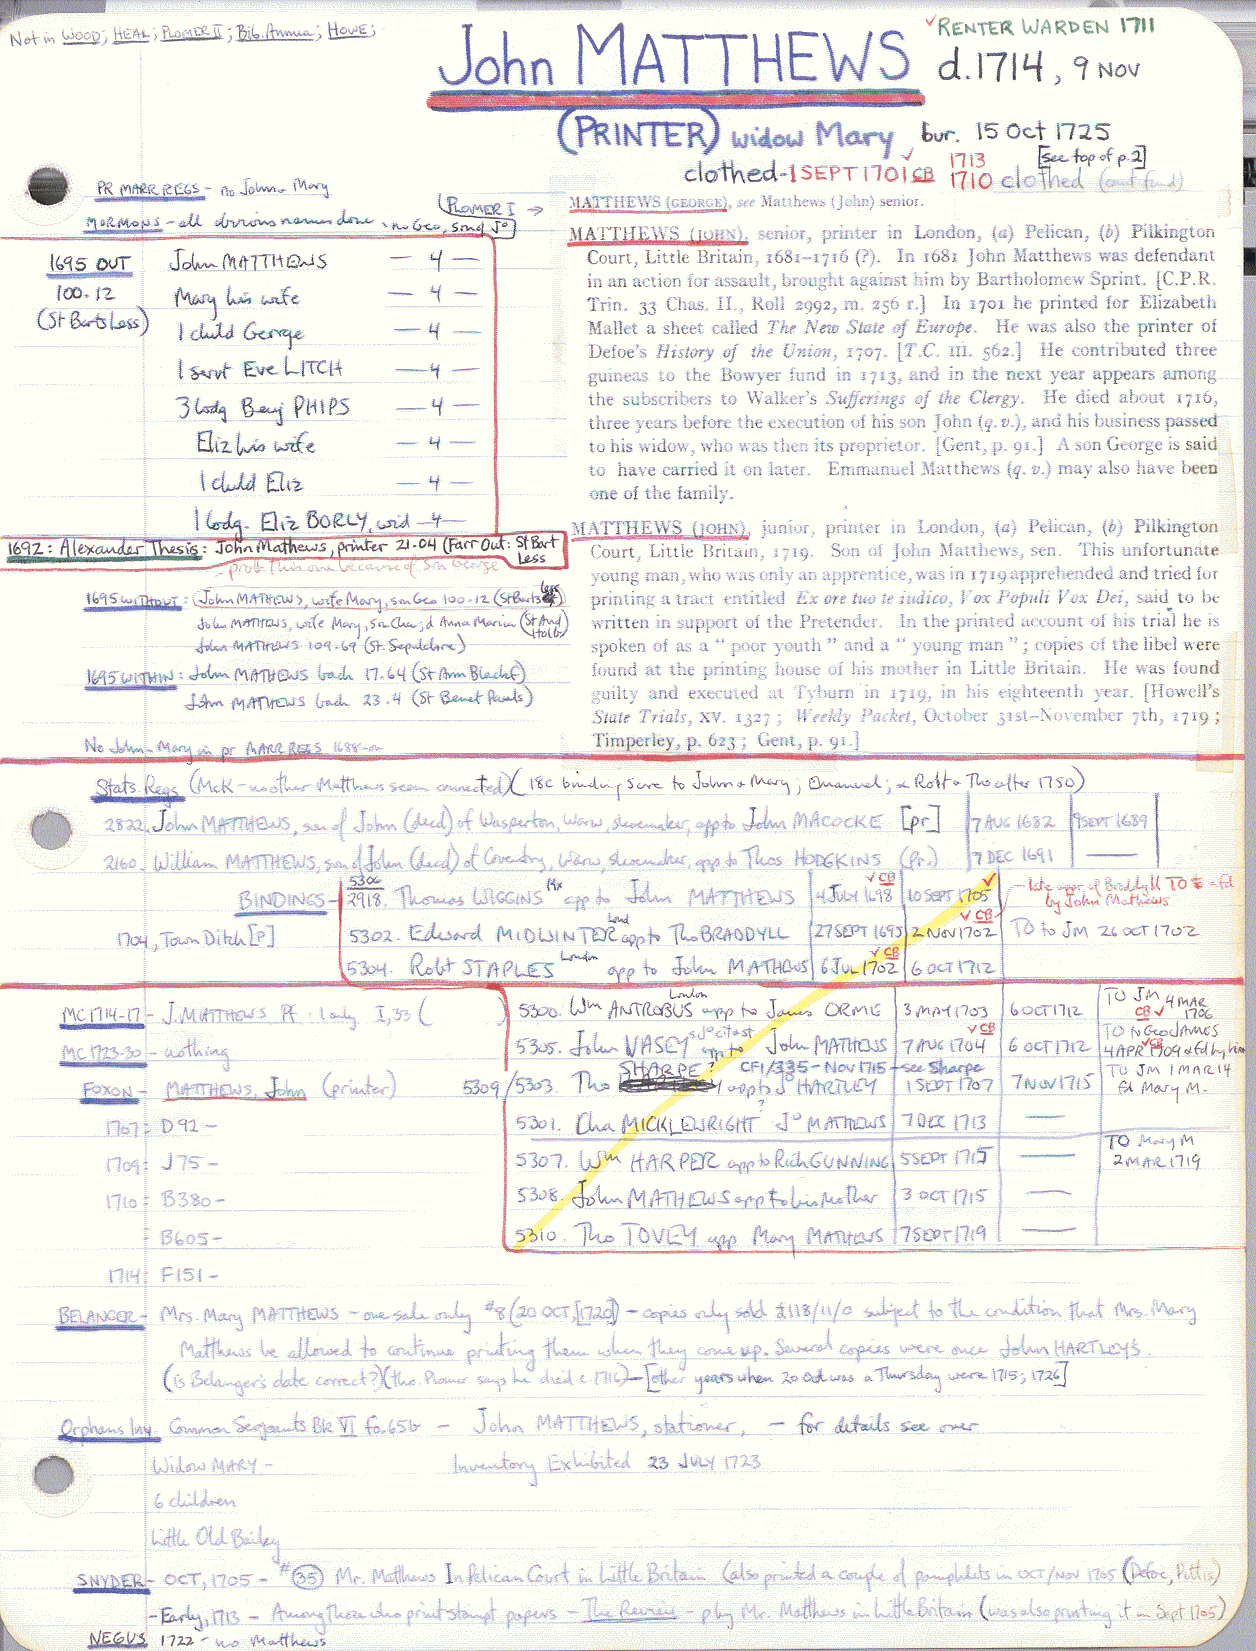 Not in WOOD; HEAL; PLOMER II; Bib. Annua; HOWE;
✓RENTER WARDEN 1711
John MATTHEWS d.1714, 9 NOV
(PRINTER) widow Mary bur. 15 Oct 1725
clothed-1 SEPT 1701 CB 1713 [see top of p.2]
1710 clothed
PR MARR REGS - no John + Mary
MORMONS - all obvious names done - no Geo, son of Jº
(PLOMER I →
MATTHEWS (GEORGE), see Matthews (John) senior.
MATTHEWS (JOHN), senior, printer in London, (a) Pelican, (b) Pilkington
Court, Little Britain, 1681–1716 (?). In 1681 John Matthews was defendant
in an action for assault, brought against him by Bartholomew Sprint. [C.P.R.
Trin. 33 Chas. II., Roll 2992, m. 256 r.] In 1701 he printed for Elizabeth
Mallet a sheet called The New State of Europe. He was also the printer of
Defoe's History of the Union, 1707. [T.C. III. 562.] He contributed three
guineas to the Bowyer fund in 1713, and in the next year appears among
the subscribers to Walker's Sufferings of the Clergy. He died about 1716,
three years before the execution of his son John (q.v.), and his business passed
to his widow, who was then its proprietor. [Gent, p. 91.] A son George is said
to have carried it on later. Emmanuel Matthews (q. v.) may also have been
one of the family.
MATTHEWS (JOHN), junior, printer in London, (a) Pelican, (b) Pilkington
Court, Little Britain, 1719. Son of John Matthews, sen. This unfortunate
young man, who was only an apprentice, was in 1719 apprehended and tried for
printing a tract entitled Ex ore tuo te iudico, Vox Populi Vox Dei, said to be
written in support of the Pretender. In the printed account of his trial he is
spoken of as a "poor youth" and a "young man"; copies of the libel were
found at the printing house of his mother in Little Britain. He was found
guilty and executed at Tyburn in 1719, in his eighteenth year. [Howell's
State Trials, XV. 1327; Weekly Packet, October 31st–November 7th, 1719;
Timperley, p. 623; Gent, p. 91.]
1695 OUT John MATTHEWS — 4 —
100.12 Mary his wife — 4 —
(St Barts Less) 1 child George — 4 —
1 servt Eve LITCH — 4 —
3 lodg Benj PHIPS — 4 —
Eliz his wife — 4 —
1 child Eliz — 4 —
1 lodg. Eliz BORLY, wid — 4 —
1692: Alexander Thesis: John Mathews, printer 21.04 (Farr Out: St Bart Less
prob this one because of son George
1695 WITHOUT: (John MATHEWS, wife Mary, son Geo 100.12 (St Barts Less)
John MATHEWS, wife Mary, son Cha; d Anna Maria (St And Holb)
John MATHEWS 109.69 (St. Sepulchre)
1695 WITHIN: John MATHEWS bach 17.64 (St Ann Blackf)
John MATHEWS bach 23.4 (St Benet Pauls)
No John-Mary in pr MARR REGS 1688-on
Stats. Regs (McK - no other Matthews seem connected) (18c bindings are to John + Mary; Emanuel; + Robt + Tho after 1750)
2822. John MATTHEWS, son of John (decd) of Wasperton, Warw, shoemaker, app to John MACOCKE [pr] 7 AUG 1682 9 SEPT 1689
2160. William MATTHEWS, son of John (decd) of Coventry, Warw, shoemaker, app to Thos HODGKINS (Pr.) 7 DEC 1691 —
BINDINGS - 5306 2918. Thomas WIGGINS Mx app to John MATTHEWS 4 JULY 1698 ✓CB 10 SEPT 1705 ✓
by John Mathews
1704, Town Ditch [P] 5302. Edward MIDWINTER Lond app to Tho BRADDYLL 27 SEPT 1695 2 NOV 1702 ✓CB TO to JM 26 OCT 1702
5304. Robt STAPLES London app to John MATHEWS 6 JUL 1702 ✓CB 6 OCT 1712
MC 1714-17 - J. MATTHEWS Pf - 1 only I, 33 (
5300. Wm ANTROBUS London app to James ORME 3 MAY 1703 6 OCT 1712 TO JM 4 MAR 1706 CB ✓
MC 1723-30 - nothing
5305. John VASEY app to John MATHEWS 7 AUG 1704 ✓CB 6 OCT 1712 TO Geo JAMES 4 APR 1709 + fd by him
FOXON - MATTHEWS, John (printer)
5309/5303. Tho SHARPE? app to Jº HARTLEY CF1/335 - NOV 1715 - see Sharpe 1 SEPT 1707 7 NOV 1715 TO JM 1 MAR 14 fd Mary M.
1707: D92 -
5301. Cha MICKLEWRIGHT ? Jº MATHEWS 7 DEC 1713 —
1709: J75 -
5307. Wm HARPER app to Rich GUNNING 5 SEPT 1715 — TO Mary M 2 MAR 1719
1710: B380 -
5308. John MATHEWS app to his mother 3 OCT 1715 —
: B605 -
5310. Tho TOVEY app Mary MATHEWS 7 SEPT 1719 —
1714: F151 -
BELANGER - Mrs. Mary MATTHEWS - one sale only #8 (20 OCT, [1720]) - copies only sold £118/11/0 subject to the condition that Mrs. Mary
Matthews be allowed to continue printing them when they come up. Several copies were once John HARTLEY'S.
(is Belanger's date correct?) (tho. Plomer says he died c.1716) - [other years when 20 Oct was a Thursday were 1715; 1726]
Orphans Inv. Common Serjeants Bk VI fo.65b - John MATTHEWS, stationer, - for details see over
Widow MARY - Inventory Exhibited 23 JULY 1723
6 children
Little Old Bailey
SNYDER - OCT, 1705 - #(35) Mr. Matthews In Pelican Court in Little Britain (also printed a couple of pamphlets in OCT/NOV 1705 (Defoe, Pittis)
- Early, 1713 - Among those who print stampt papers - The Review - p by Mr. Matthews in Little Britain (was also printing it in Sept 1705)
NEGUS 1722 - no Matthews